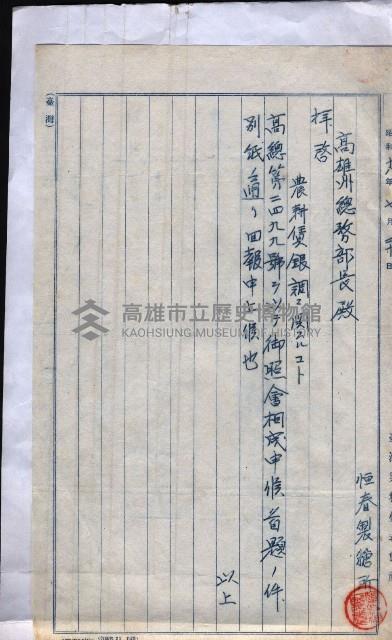 高雄州總務部長殿
恒春製糖所
拝啓
農耕賃銀調ニ関スルコト
高總第二四九九號ヲ以テ御照會相成申候首題ノ件
別紙ノ通リ回報申上候也
以上
(臺灣)
高雄市立歷史博物館
KAOHSIUNG MUSEUM OF HISTORY